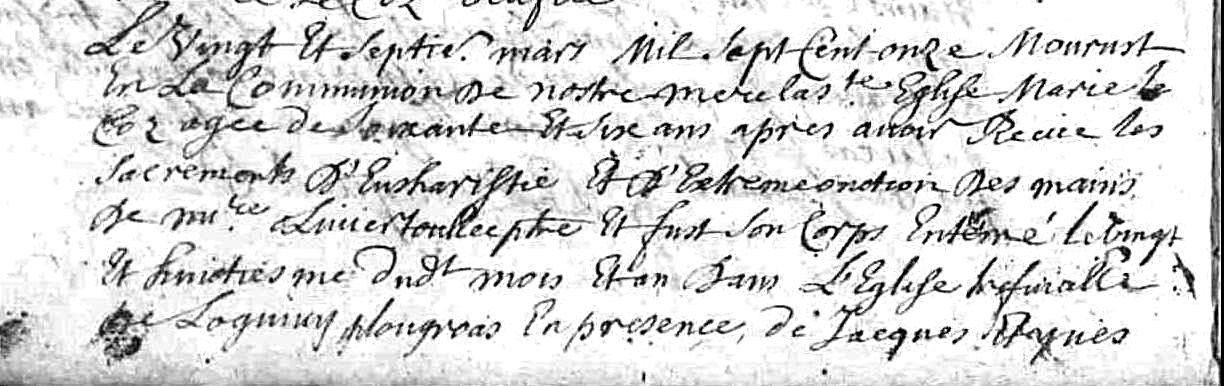 Le Vingt Et Septie. mars Mil Sept Cent onze Mourust
En La Communion de nostre mere la s.te Eglise Marie le
Coz agee de Soixante Et Six ans apres avoir Receue les
Sacrements D'Eusharistie Et D'Extremeonction Des mains
De Olivier ptre Et fust Son Corps Enteré le Vingt
Et huictiesme dudt mois Et an Dans L'Eglise
De Loguivy plougroas En presence, de Jacques